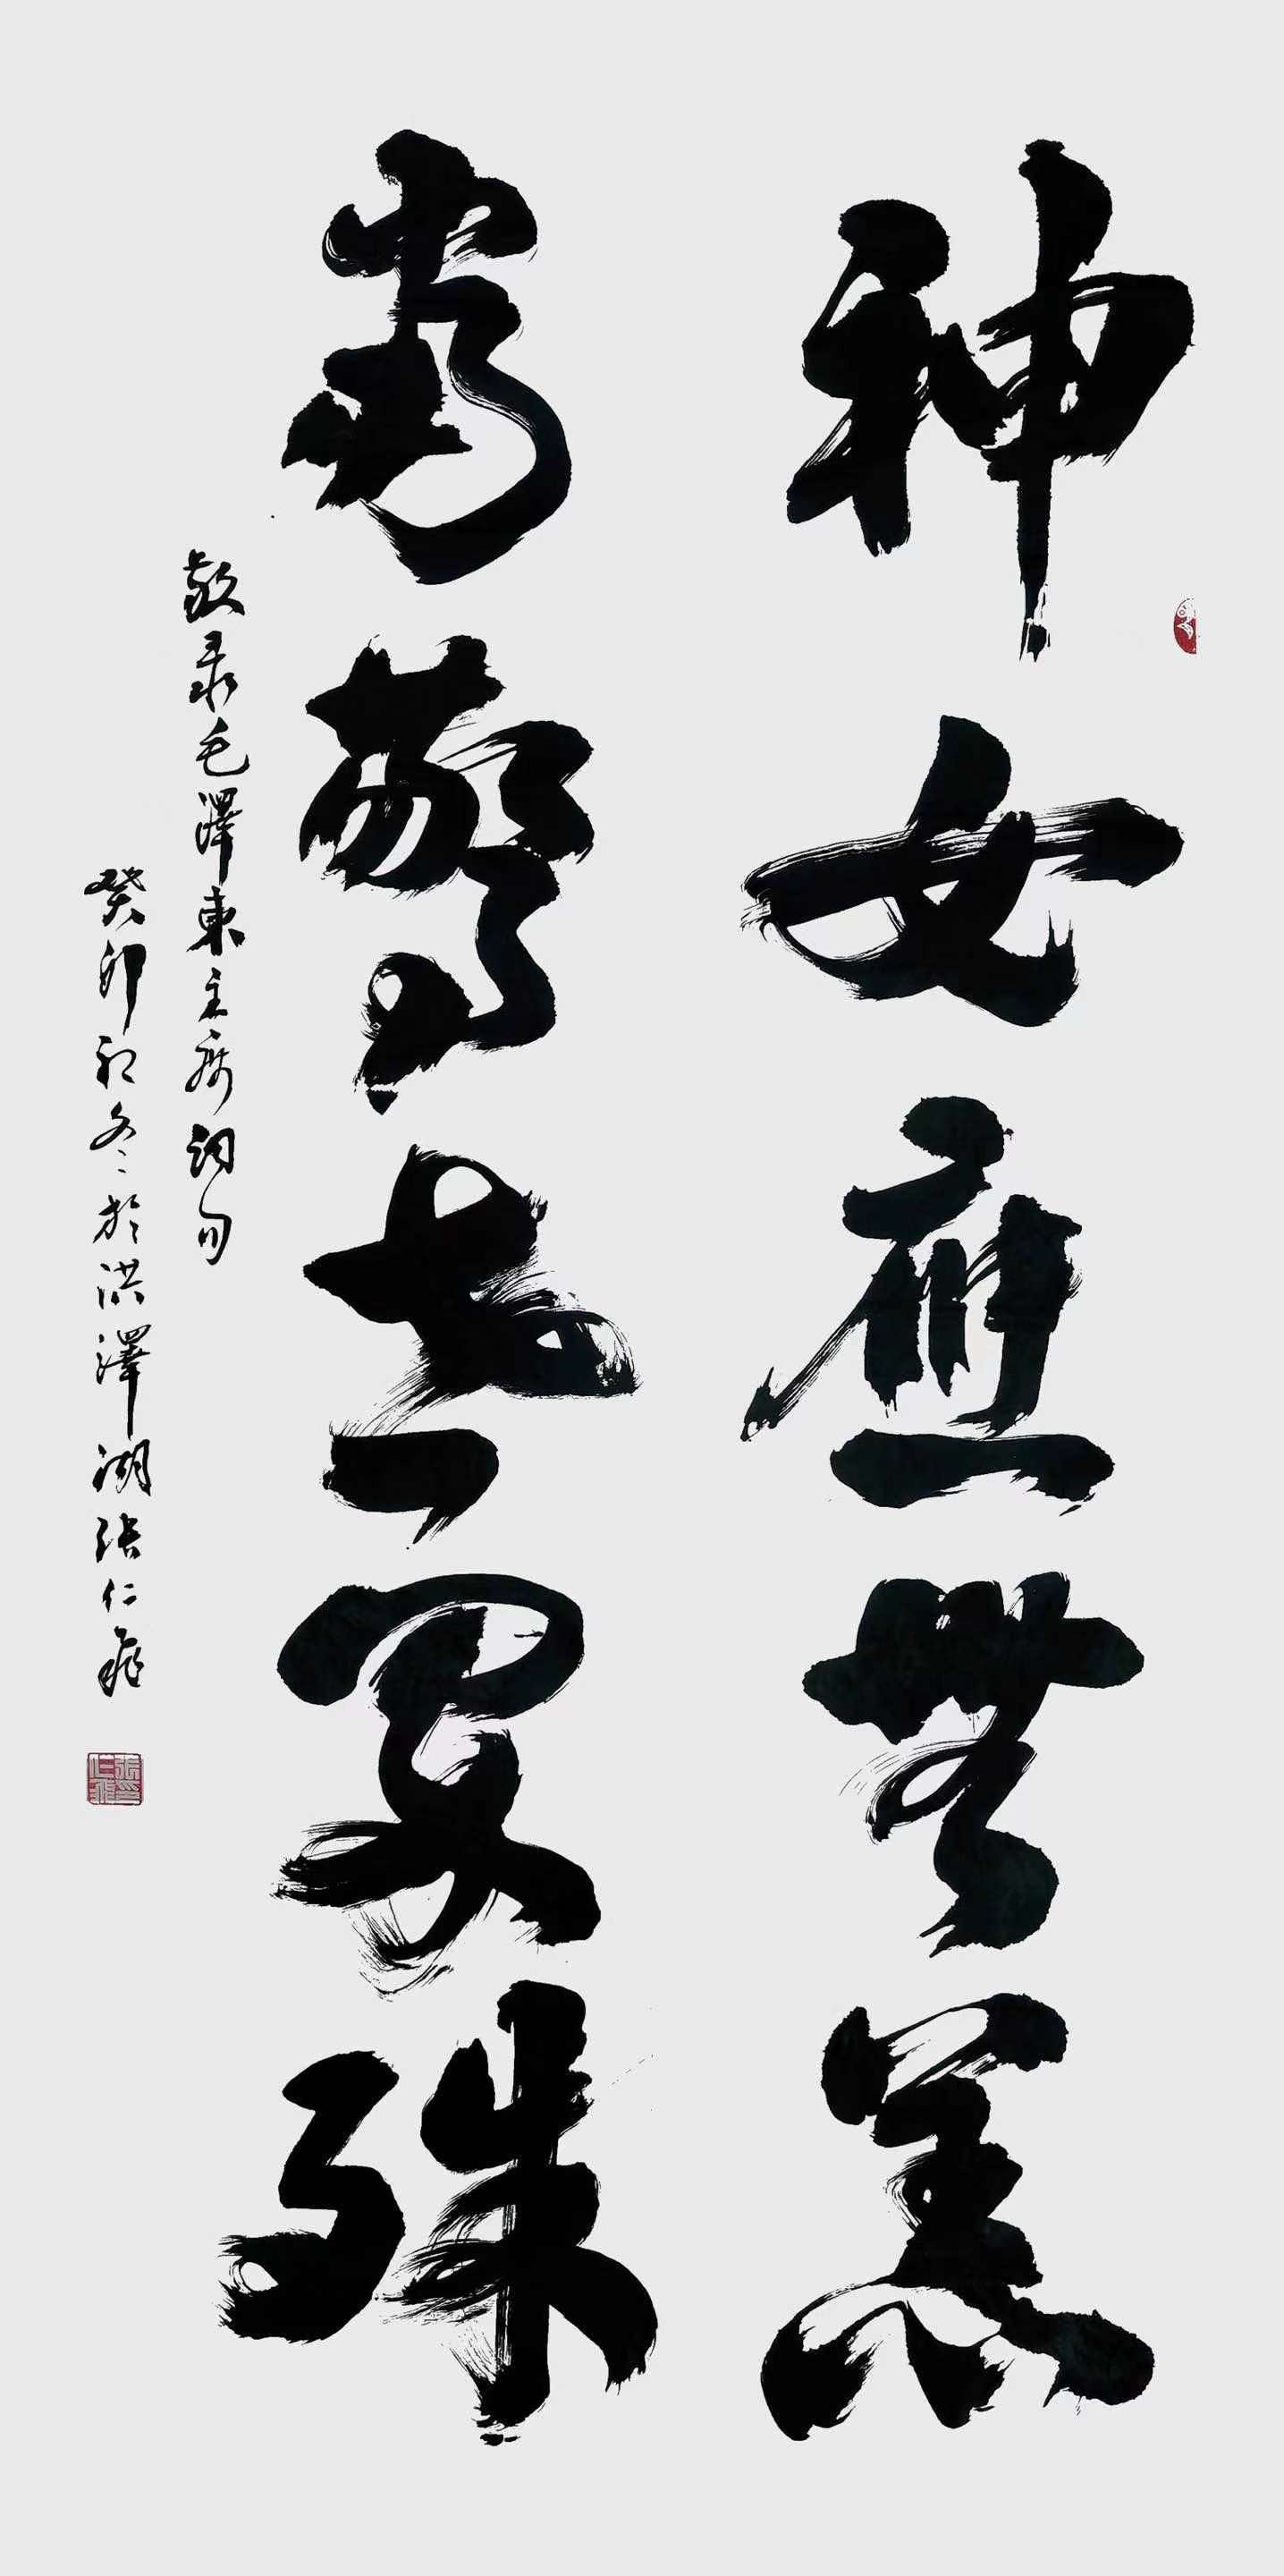 神女應無恙
當驚世界殊
敬录毛澤東主席词句
癸卯初冬於洪澤湖张仁飛